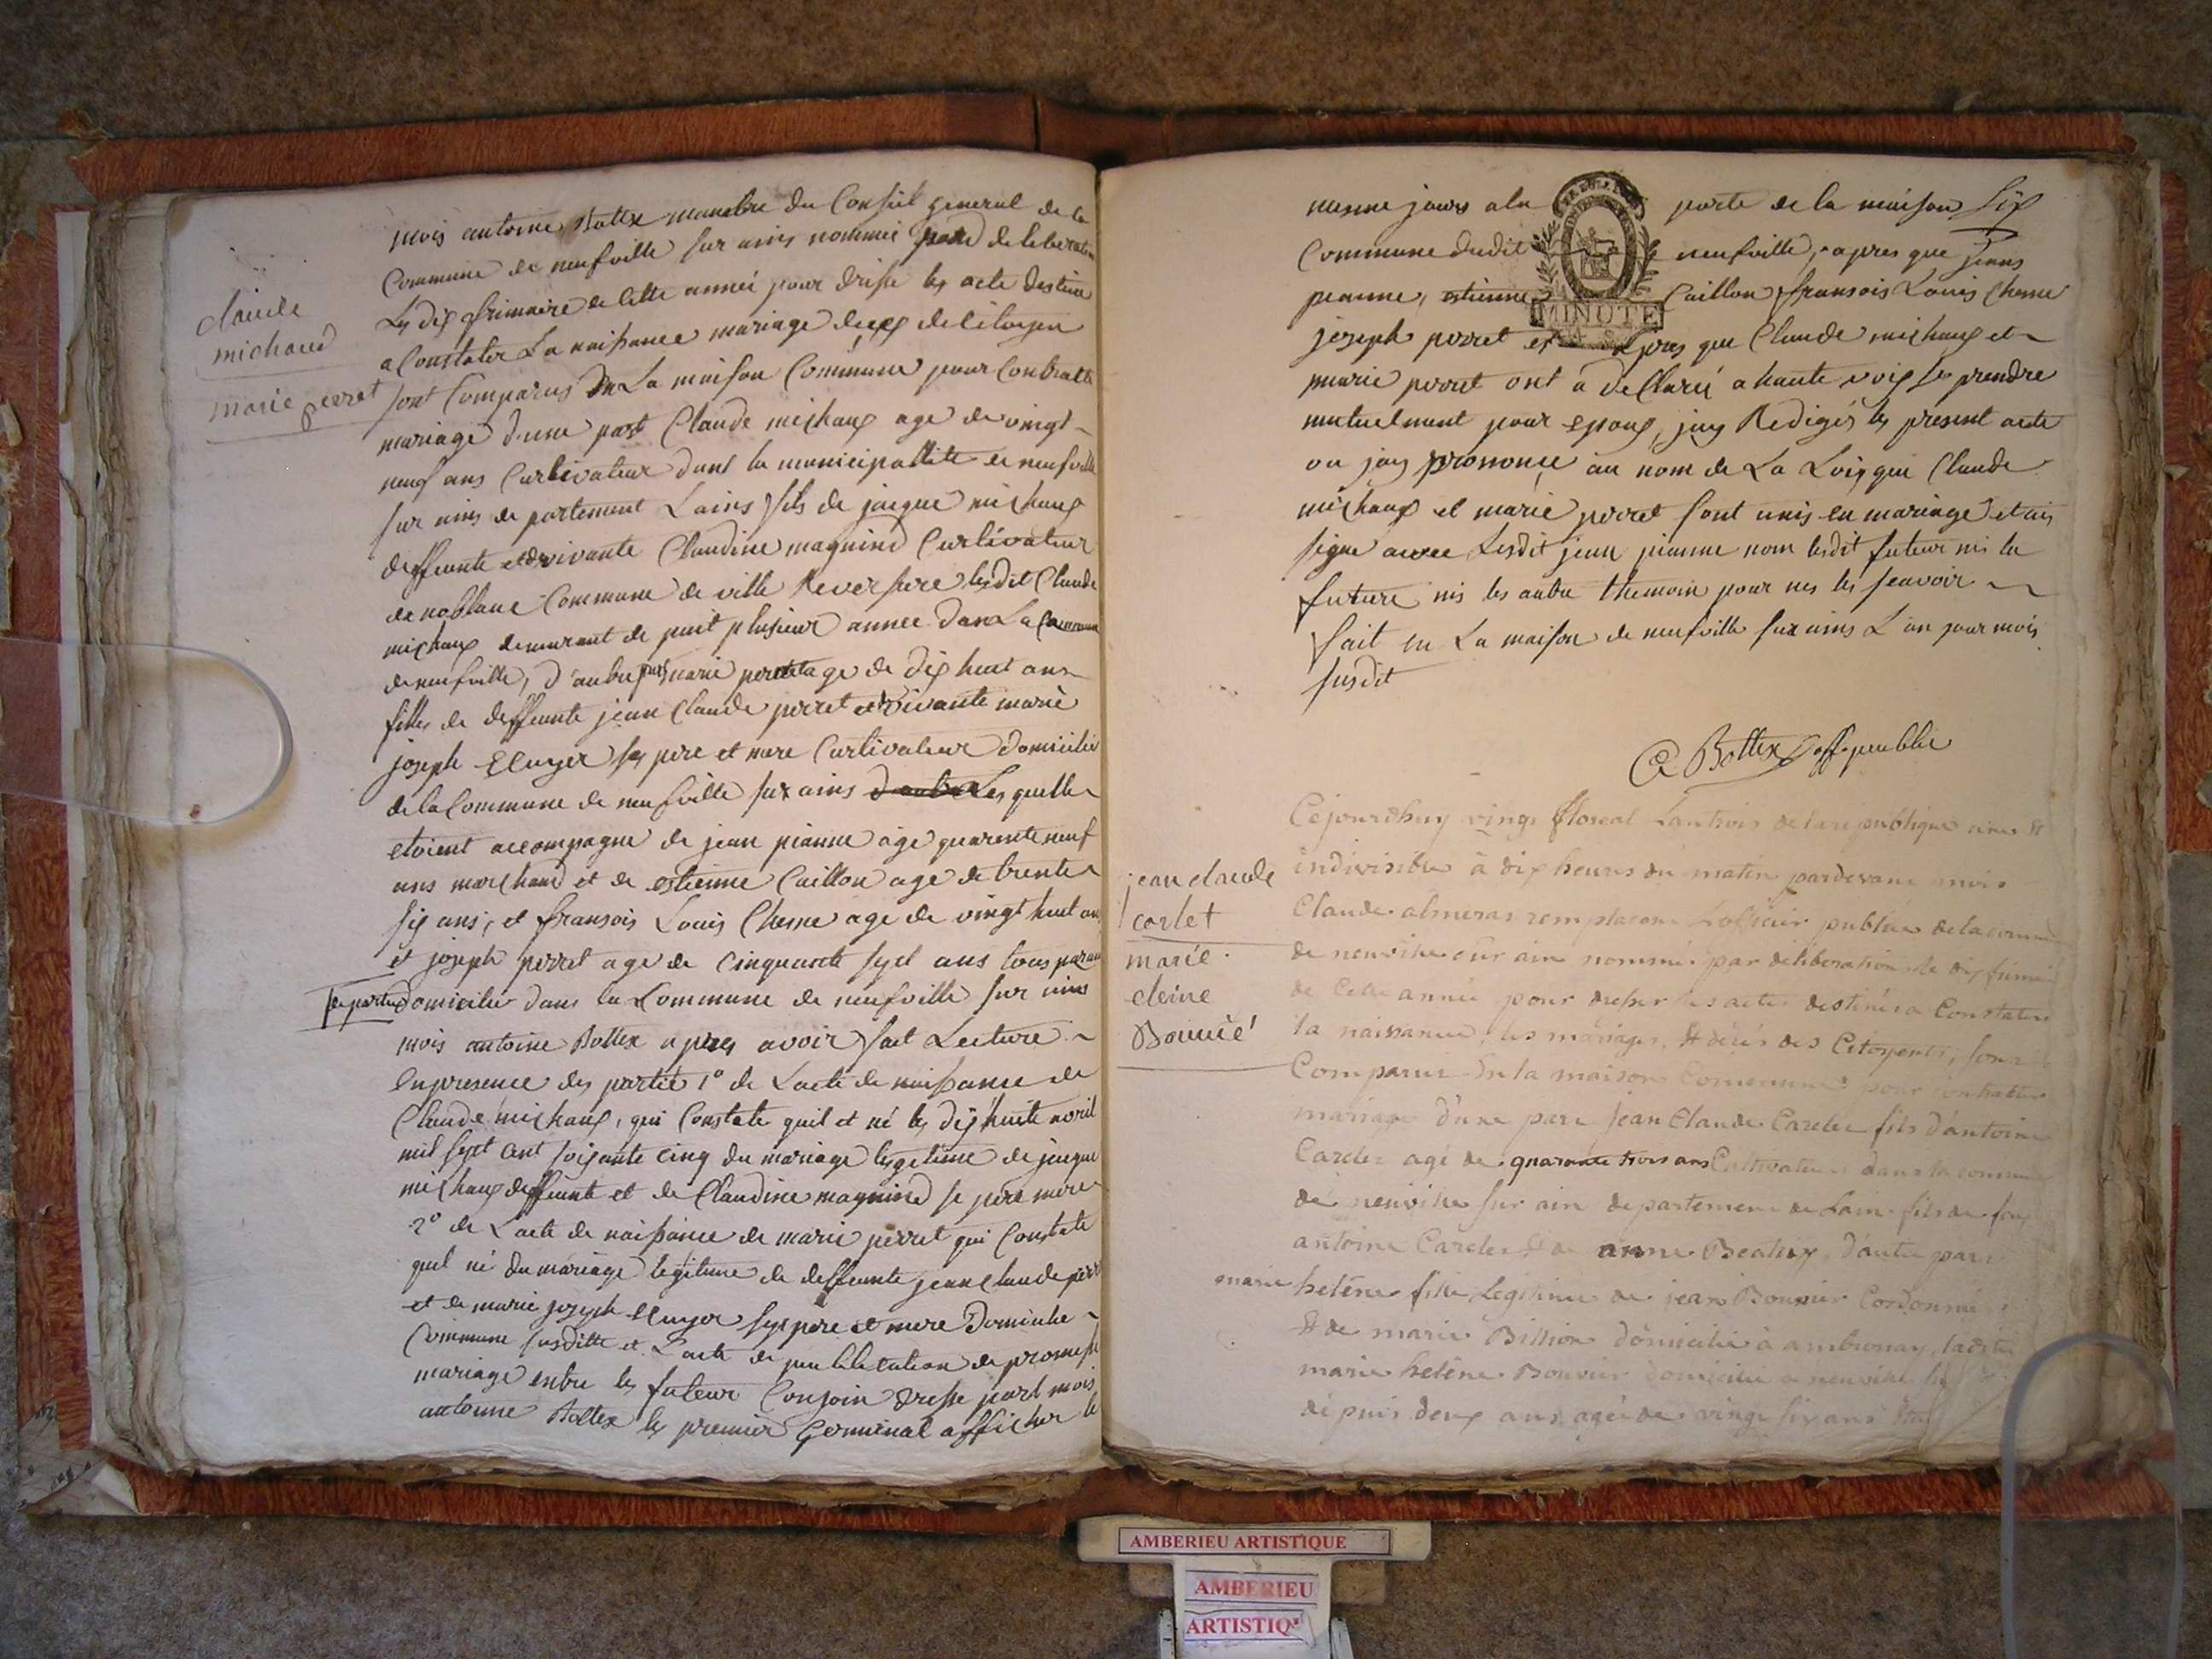 claude
michaud
marie perret
mois antoine Bottex manbre du Consiel general de la
Commune de neufville sur ains nommée de liberation
Les dix frimaire de cette année pour drisse les acte destinée
a Constater La naissance mariage de citoyen
sont Comparus La maison Commune pour Contracte
mariage d'une part Claude michaux age de vingt
neuf ans Curtivateur dans la municipallité de neufville
sur ains de partement Lains fils de jacque michaux
deffeunte et vivante Claudine magnind Curtivateur
de noblane Commune de ville Reversure lesdit Claude
michaux demeurant de puit plusieur année dans La Commune
de neufville, d'autre part marie perret age de dix huit ans
filles de deffeunte jean Claude perret et vivante marie
joseph ses pere et mere Curtivateur domicilié
de la Commune de neufville sur ains d'autre Les quelle
etoient accompagne de jean pianne age quarente neuf
ans marchand et de estienne Caillon age de trente
six ans, et fransois Louis Chesne age de vingt huit ans
et joseph perret age de cinquante sept ans tous
domicilié dans la Commune de neufville sur ains
mois antoine Bottex apres avoir fait Lecture
En presence des partie 1° de Lacte de naissance de
Claude michaux, qui Constate quil et né les dix huite avril
mil sept cent soixante cinq du mariage legetime de jacque
michaux deffeunte et de Claudine magnind se pere mere
2° de Lacte de naissance de marie perret qui Constate
quel né du mariage legitime de deffeunte jean claude perret
et de marie joseph ses pere et mere Domicilie
Commune susditte et Lacte de peublication de promesse
mariage entre les futeur Conjoin dresse part mois
antoinne Bottex les premier Germinal afficher le
mesme jours a la porte de la maison
Commune dudit neufville, apres que jean
pianne, estienne Caillon fransois Louis Chesne
MINUTE
joseph perret et apres que Claude michaux et
marie perret ont a declaré a haute voix se prendre
mutuelment pour epoux, jay Redigés les present acte
ou jay prononce au nom de La Loix que Claude
michaux et marie perret sont unis en mariage et ais
signe avec Lesdit jean pianne nom lesdit futeur nis la
future nis les autre themoin pour nes les seavoir
fait en La maison de neufville sur ains L'an jour mois
susdit
Bottex off. peublic
jean claude
carlet
marie
eleine
Bouvié
Cejourdhuy vingt floreal Lan trois de la republique une et
indivisible à dix heures du matin pardevant mois
Claude almeras remplacant Lofficier publique de la commune
de neuville sur ain nommé par deliberation de dix frimaire
de Cette année pour dresser les actes destinés a Constater
la naissance, les mariages, et décés des Citoyents, sont
Comparus En la maison Commune pour contracter
mariage d'une part jean Claude Carlet fils d'antoine
Carlet agé de quarante trois ans Cultivateur dans la commune
de neuville sur ain departement de Lain fils de feux
antoine Carlet et de anne Beatrix, d'autre part
marie heléne fille Legitime de jean Bouvier Cordonnier
Et de marie Billion domicilié à ambronay, ladite
marie heléne Bouvier domicilié a neuville
depuis deux ans agée de vingt six ans
AMBERIEU ARTISTIQUE
AMBERIEU
ARTISTIQ